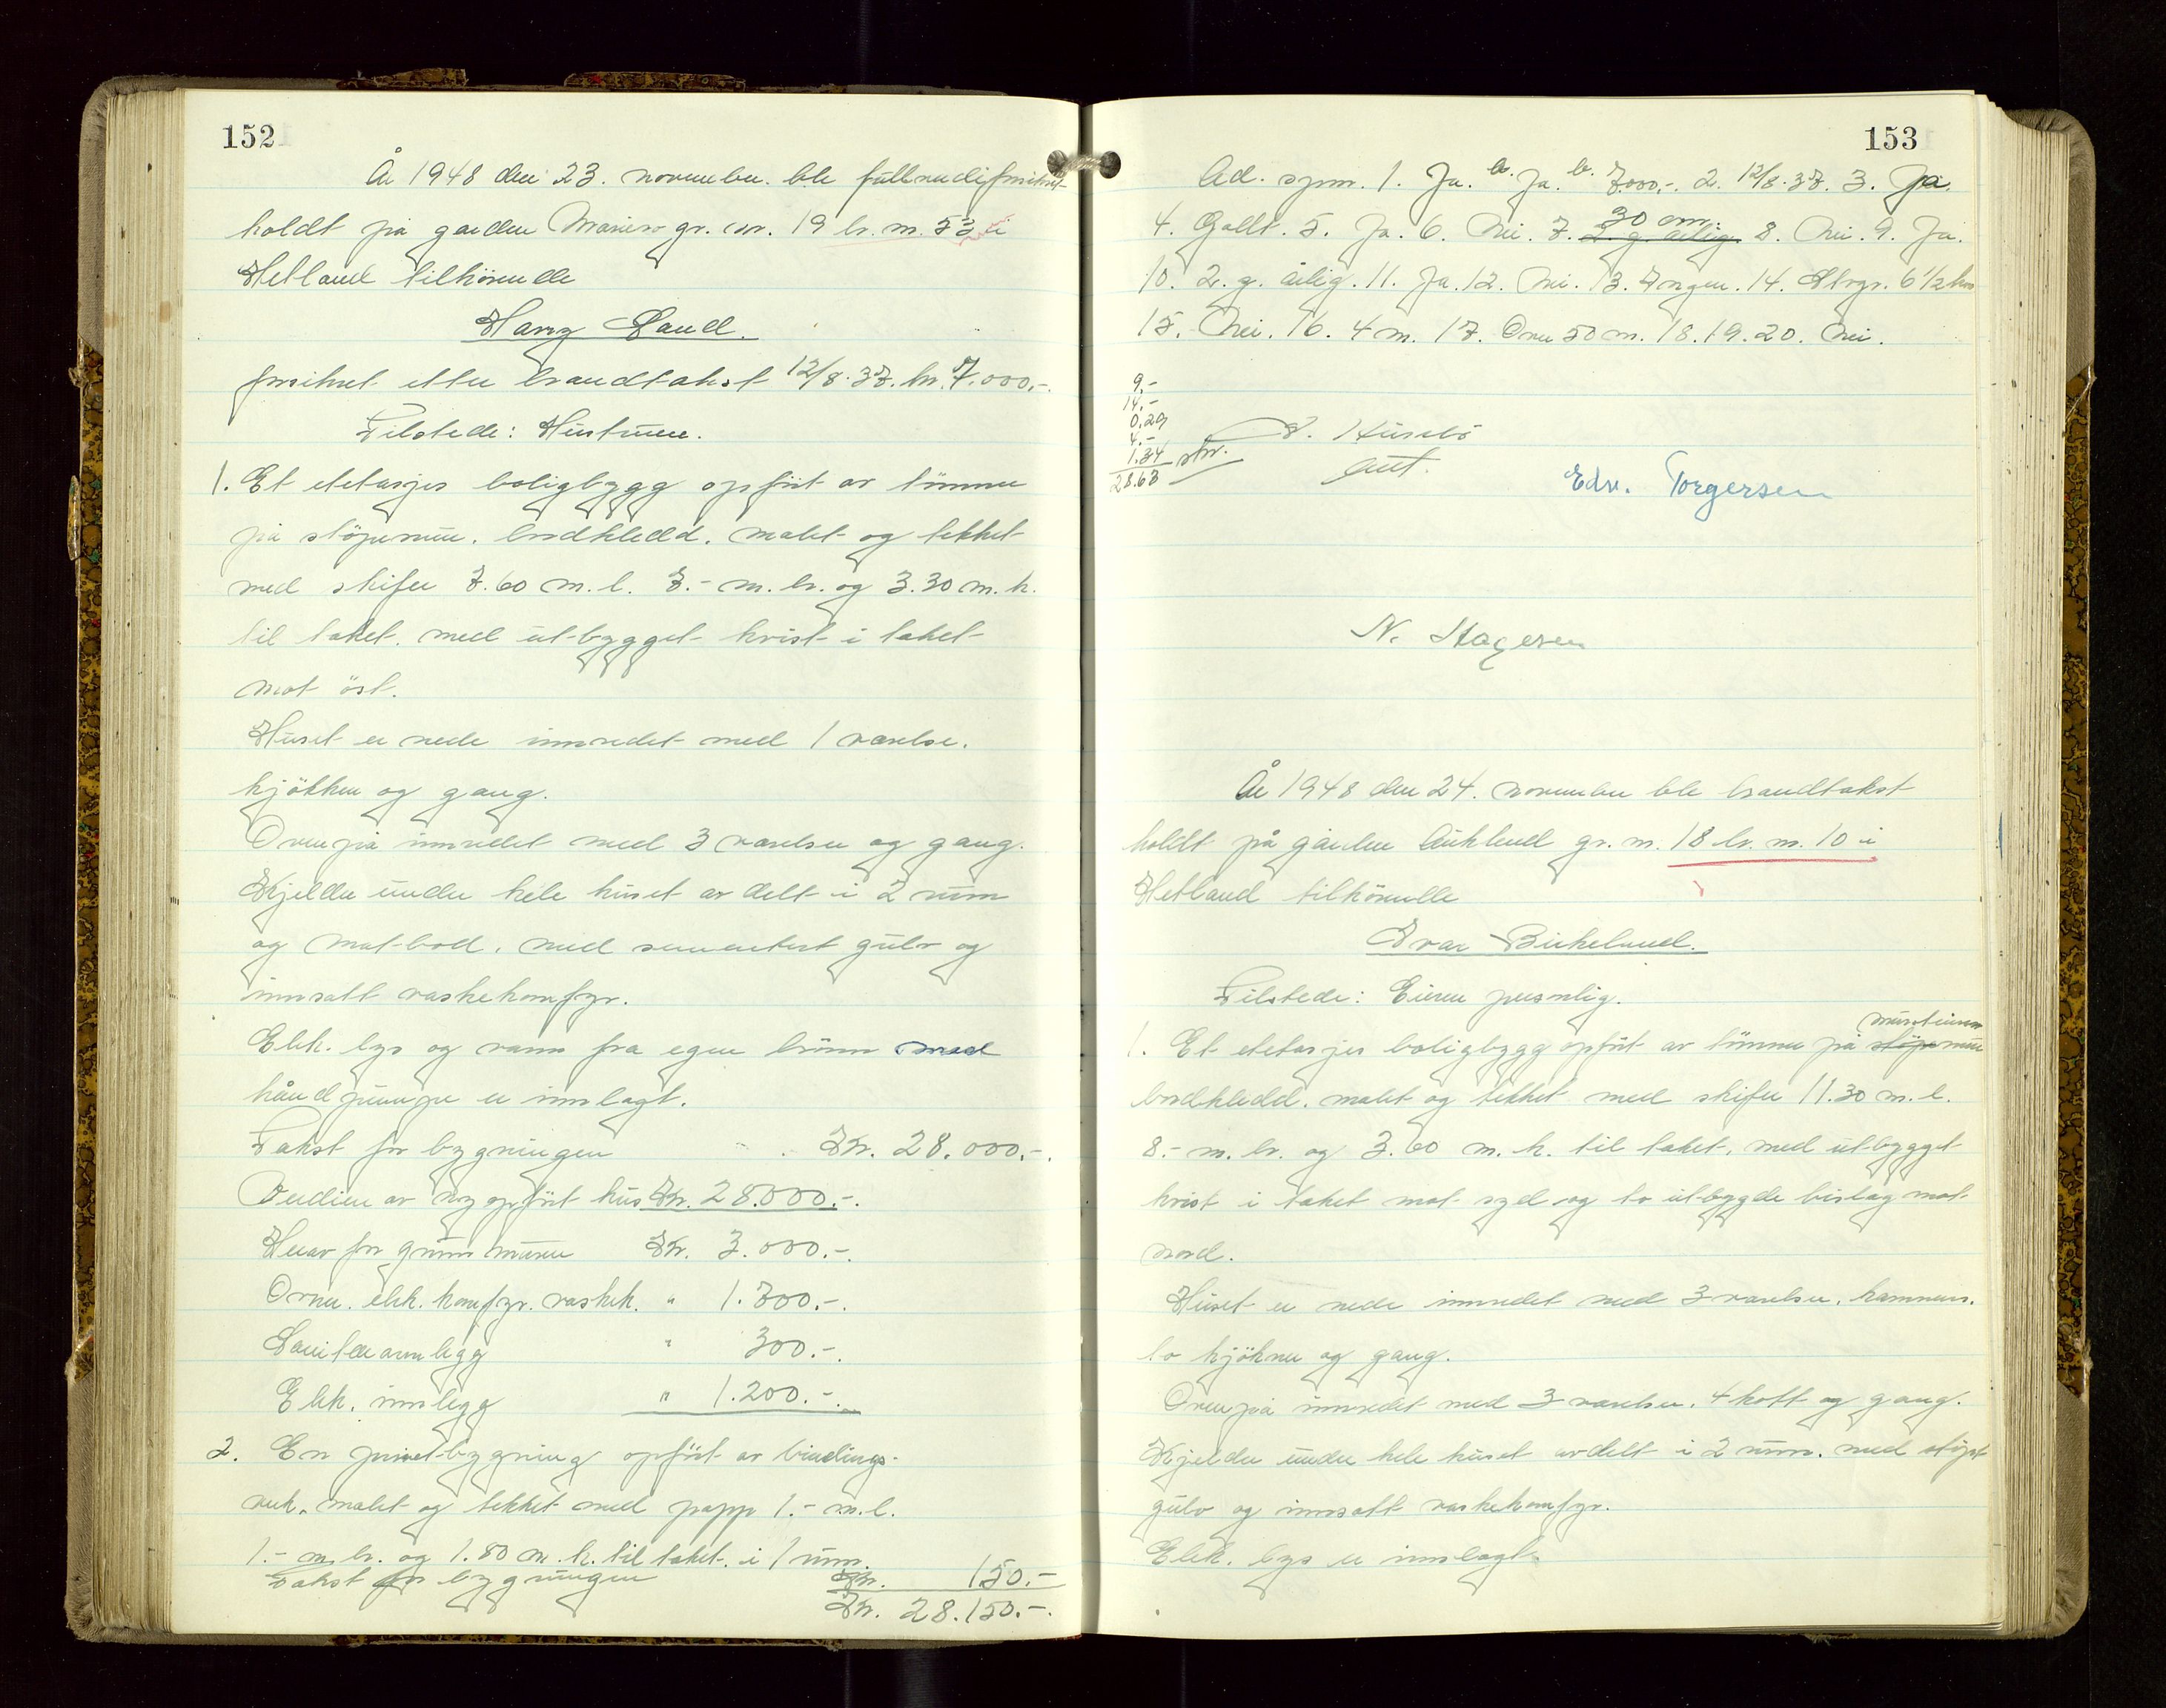 152
År 1948 den 23. november ble fullverdiforsikret
holdt på garden Mariero gr. nr. 19 br. nr. 53 i
Hetland tilhörende
Harry Sand.
forsikret etter brandtakst 12/8.37. kr. 7.000,-.
Tilstede: Hustruen.
1. Et etetasjes boligbygg opfört av tömmer
på stöpemur. bordkledd. malet og tekket
med skifer 7.60 m. l. 7.- m. br. og 3.30 m. h.
til taket. med utbygget kvist i taket
mot öst.
Huset er nede innredet med 1 værelse.
kjökken og gang.
Ovenpå innredet med 3 værelser og gang.
Kjelder under hele huset av delt i 2 rum
og mat-bod. med sementert gulv og
innsatt vaskekomfyr.
Elek. lys og vann fra egen brönn med
håndpumpe er innlagt.
Takst for bygningen Kr. 28.000.-.
Verdien av ny opfört hus Kr. 28.000.-.
Herav for grunnmuren Kr. 3.000.-.
Ovner. elek. komfyr. vaskek. " 1.300.-.
Sanitæranlegg " 300.-.
Elek. innlegg " 1.200.-.
2. En privet-bygning opfört av bindings-
verk. malet og tekket med papp 1.- m. l.
1.- m. br. og 1.80 m. h. til taket. i 1 rum.
Takst for bygningen Kr. 150.-
Kr. 28.150.-.
153
Ad. spm. 1. Ja. a. Ja. b. 7.000.-. 2. 12/8.37. 3. Ja.
30 cm.
4. Godt. 5. Ja. 6. Nei. 7. 2. g. årlig. 8. Nei. 9. Ja.
10. 2. g. årlig. 11. Ja. 12. Nei. 13. Ingen. 14. Stvgr. 6 1/2 km
15. Nei. 16. 4 m. 17. Over 50 m. 18. 19. 20. Nei.
9.-
14.-
0.29
4.-
1.34 stv.
28.63
Husebö
Edv. Torgersen
N. Hagesen
År 1948 den 24. november ble brandtakst
holdt på gården Aukland gr. nr. 18 br. nr. 10 i
Hetland tilhörende
Ivar Birkeland.
Tilstede: Eieren personlig.
murstein
1. Et etetasjes boligbygg opfört av tömmer på stöpemur
bordkledd. malet og tekket med skifer 11.30 m. l.
8.- m. br. og 3.60 m. h. til taket. med utbygget
kvist i taket mot syd og to utbygde bislag mot
nord.
Huset er nede innredet med 3 værelser. kammers.
to kjökner og gang.
Ovenpå innredet med 3 værelser. 4 kott og gang.
Kjelder under hele huset avdelt i 2 rum. med stöpt
gulv og innsatt vaskekomfyr.
Elek. lys er innlagt.